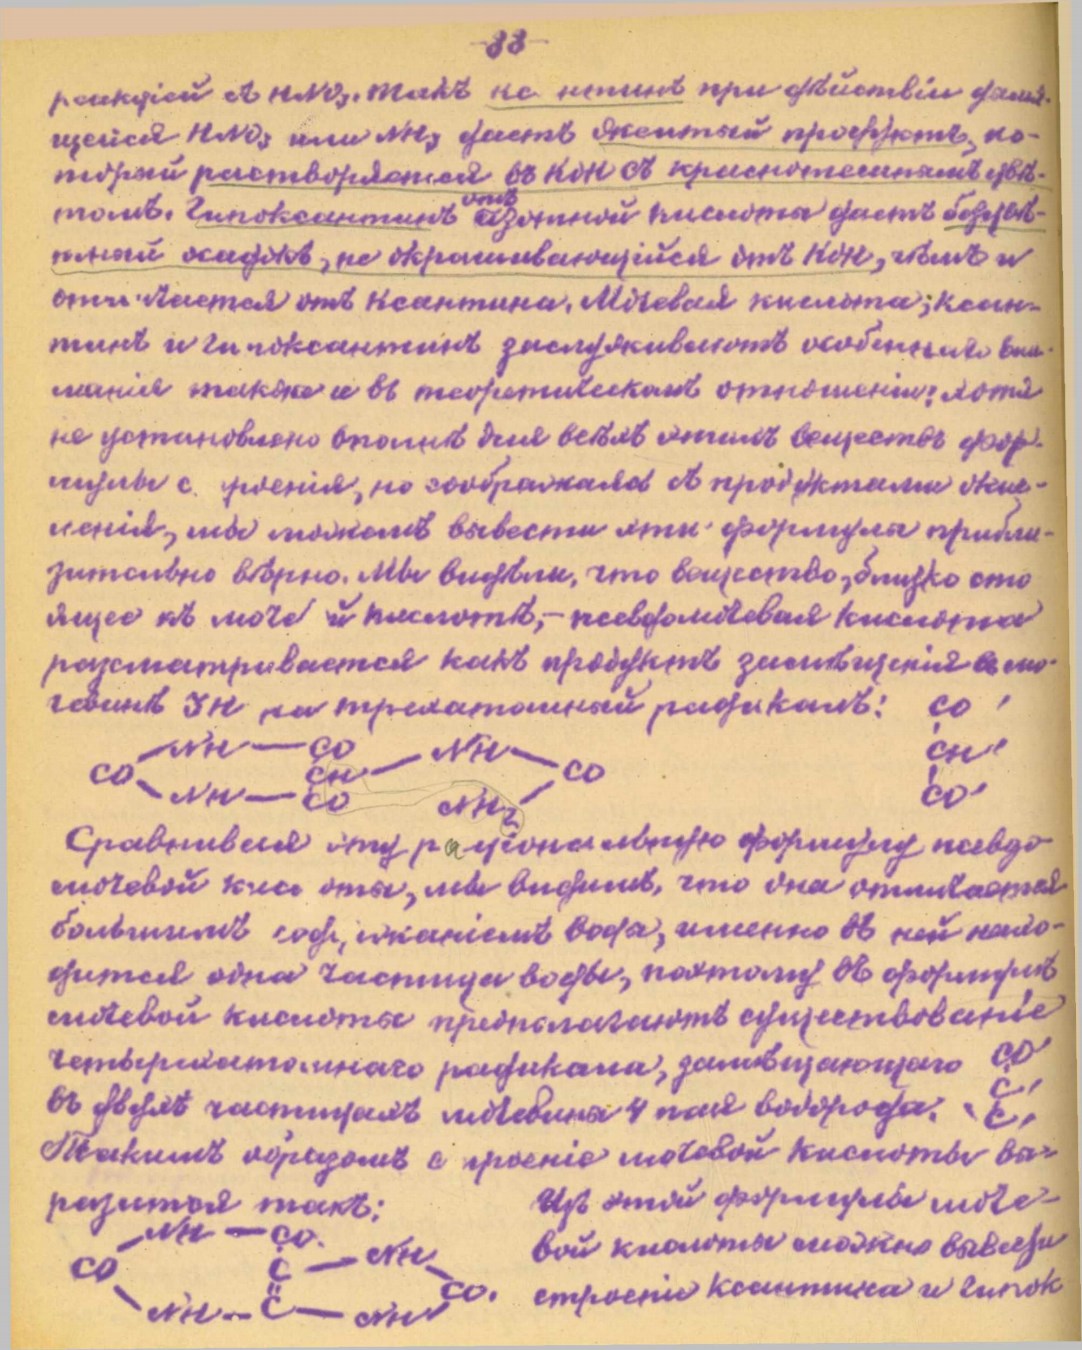 -88-
реакціей съ HNO₃. Такъ ксантинъ при дѣйствіи дымя-
щейся HNO₃ или NH₃ даетъ желтый продуктъ, ко-
торый растворяется въ KOH съ краснотемнымъ цвѣ-
томъ. Гипоксантинъ отъ азотной кислоты даетъ безцвѣ-
тный осадокъ, не окрашивающійся отъ KOH, чѣмъ и
отличается отъ ксантина. Мочевая кислота, ксан-
тинъ и гипоксантинъ заслуживаютъ особеннаго вни-
манія также и въ теоретическомъ отношеніи: хотя
не установлено вполнѣ для всѣхъ этихъ веществъ фор-
мулы строенія, но соображаясь съ продуктами окис-
ленія, мы можемъ вывести эти формулы прибли-
зительно вѣрно. Мы видѣли, что вещество, близко сто
ящее къ мочевой кислотѣ, – псевдомочевая кислота
разсматривается какъ продуктъ замѣщенія въ мо-
чевинѣ 3H на трехатомный радикалъ: CO '
CH '
CO '
NH — CO
CO CH — NH CO
NH — CO NH₂
Сравнивая эту раціональную формулу псевдо
мочевой кислоты, мы видимъ, что она отличается
большимъ содержаніемъ воды, именно въ ней нахо-
дится одна частица воды, поэтому въ формулѣ
мочевой кислоты предполагаютъ существованіе
четырехатомнаго радикала, замѣщающаго CO '
C '
въ двухъ частицахъ мочевины 4 пая водорода. C '
Такимъ образомъ строеніе мочевой кислоты вы-
разится такъ: Изъ этой формулы моче-
вой кислоты можно вывести
строеніе ксантина и гипок
NH — CO
CO C — NH
CO.
NH — C — NH